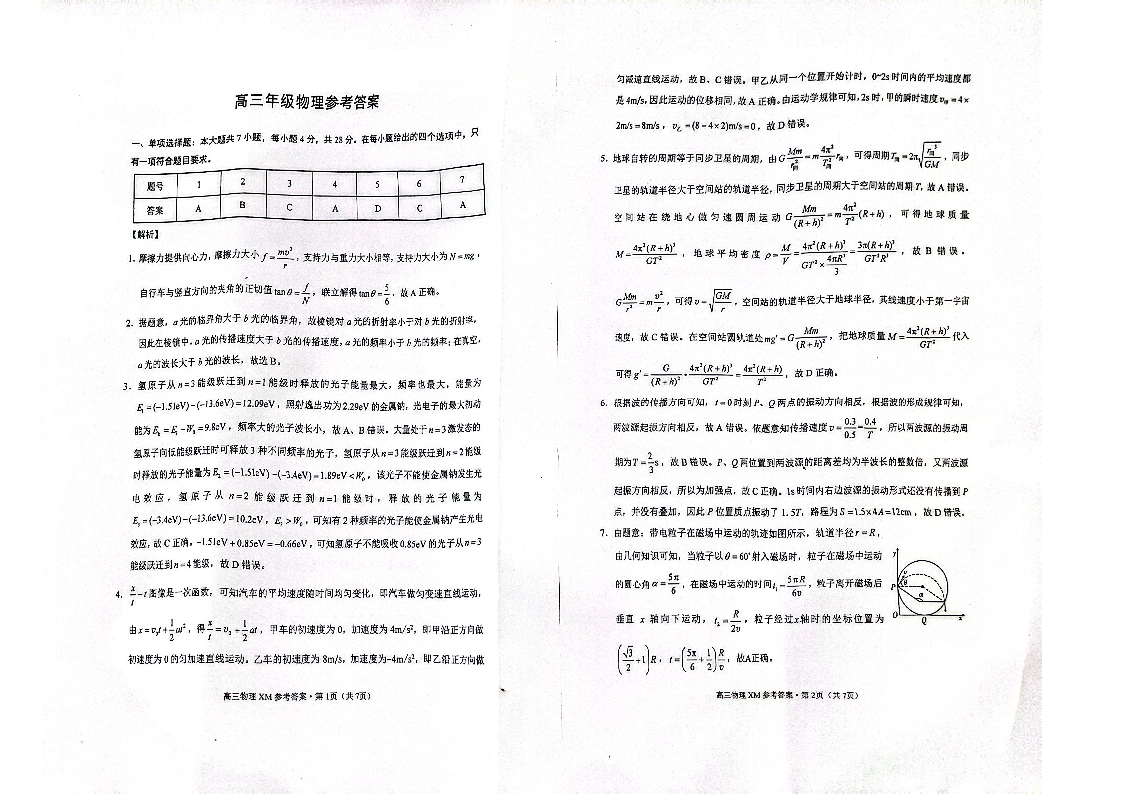 高三年级物理参考答案
一、单项选择题：本大题共7小题，每小题4分，共28分。在每小题给出的四个选项中，只
有一项符合题目要求。
题号 1 2 3 4 5 6 7
答案 A B C A D C A
【解析】
1. 摩擦力提供向心力，摩擦力大小 f=mv²/r，支持力与重力大小相等，支持力大小为N=mg，
自行车与竖直方向的夹角的正切值tanθ=f/N，联立解得tanθ=5/6，故A正确。
2. 据题意，a光的临界角大于b光的临界角，故棱镜对a光的折射率小于对b光的折射率，
因此在棱镜中，a光的传播速度大于b光的传播速度，a光的频率小于b光的频率；在真空，
a光的波长大于b光的波长，故选B。
3. 氢原子从n=3能级跃迁到n=1能级时释放的光子能量最大，频率也最大，能量为
E₁=(-1.51eV)-(-13.6eV)=12.09eV，照射逸出功为2.29eV的金属钠，光电子的最大初动
能为Eₖ=E₁-W₀=9.8eV，频率大的光子波长小，故A、B错误。大量处于n=3激发态的
氢原子向低能级跃迁时可释放3种不同频率的光子，氢原子从n=3能级跃迁到n=2能级
时释放的光子能量为E₂=(-1.51eV)-(-3.4eV)=1.89eV<W₀，该光子不能使金属钠发生光
电效应，氢原子从n=2能级跃迁到n=1能级时，释放的光子能量为
E₃=(-3.4eV)-(-13.6eV)=10.2eV，E₃>W₀，可知有2种频率的光子能使金属钠产生光电
效应，故C正确。-1.51eV+0.85eV=-0.66eV，可知氢原子不能吸收0.85eV的光子从n=3
能级跃迁到n=4能级，故D错误。
4. x/t-t图像是一次函数，可知汽车的平均速度随时间均匀变化，即汽车做匀变速直线运动，
由x=v₀t+1/2at²，得x/t=v₀+1/2at，甲车的初速度为0，加速度为4m/s²，即甲沿正方向做
初速度为0的匀加速直线运动。乙车的初速度为8m/s，加速度为-4m/s²，即乙沿正方向做
高三物理XM参考答案·第1页（共7页）
匀减速直线运动，故B、C错误。甲乙从同一个位置开始计时，0~2s时间内的平均速度都
是4m/s，因此运动的位移相同，故A正确。由运动学规律可知，2s时，甲的瞬时速度v甲=4×
2m/s=8m/s，v乙=(8-4×2)m/s=0，故D错误。
5. 地球自转的周期等于同步卫星的周期，由G Mm/r同²=m 4π²/T同² r同，可得周期T同=2π√(r同³/GM)，同步
卫星的轨道半径大于空间站的轨道半径，同步卫星的周期大于空间站的周期T，故A错误。
空间站在绕地心做匀速圆周运动 G Mm/(R+h)²=m 4π²/T²(R+h)，可得地球质量
M=4π²(R+h)³/GT²，地球平均密度ρ=M/V=4π²(R+h)³/(GT²×4πR³/3)=3π(R+h)³/GT²R³，故B错误。
G Mm/r²=m v²/r，可得v=√(GM/r)，空间站的轨道半径大于地球半径，其线速度小于第一宇宙
速度，故C错误。在空间站圆轨道处mg'=G Mm/(R+h)²，把地球质量M=4π²(R+h)³/GT²代入
可得g'=G/(R+h)²·4π²(R+h)³/GT²=4π²(R+h)/T²，故D正确。
6. 根据波的传播方向可知，t=0时刻P、Q两点的振动方向相反，根据波的形成规律可知，
两波源起振方向相反，故A错误。依题意知传播速度v=0.3/0.5=0.4/T，所以两波源的振动周
期为T=2/3s，故B错误。P、Q两位置到两波源的距离差均为半波长的整数倍，又两波源
起振方向相反，所以为加强点，故C正确。1s时间内右边波源的振动形式还没有传播到P
点，并没有叠加，因此P位置质点振动了1.5T，路程为S=1.5×4A=12cm，故D错误。
7. 由题意：带电粒子在磁场中运动的轨迹如图所示，轨道半径r=R，
由几何知识可知，当粒子以θ=60°射入磁场时，粒子在磁场中运动
的圆心角α=5π/6，在磁场中运动的时间t₁=5πR/6v，粒子离开磁场后
垂直x轴向下运动，t₂=R/2v，粒子经过x轴时的坐标位置为
(√3/2+1)R，t=(5π/6+1/2)R/v，故A正确。
y
v
θ
P
α
O
Q
x
高三物理XM参考答案·第2页（共7页）